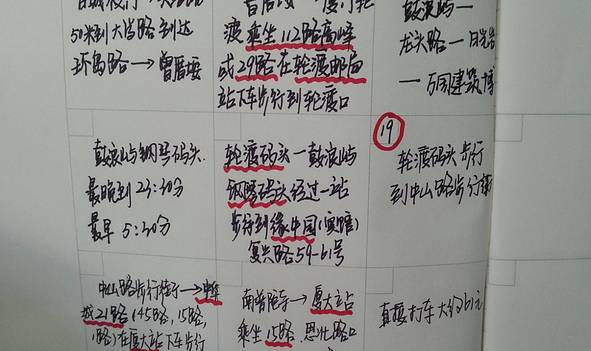 50米到大学路到达
环岛路→曾厝垵
渡乘坐112路高峰
或29路在轮渡邮局
站下车步行到轮渡口
鼓浪屿—
龙头路—日光岩
—万国建筑博
鼓浪屿钢琴码头
最晚到23:30分
最早5:30分
轮渡码头—鼓浪屿
钢琴码头经过一站
步行到缘中国(宾馆)
复兴路59-61号
19
轮渡码头步行
到中山路步行街
中山路步行街→
21路(45路、15路、
1路)在厦大站下车步行
南普陀寺→厦大站
乘坐15路、思北路口
直接打车大约61元